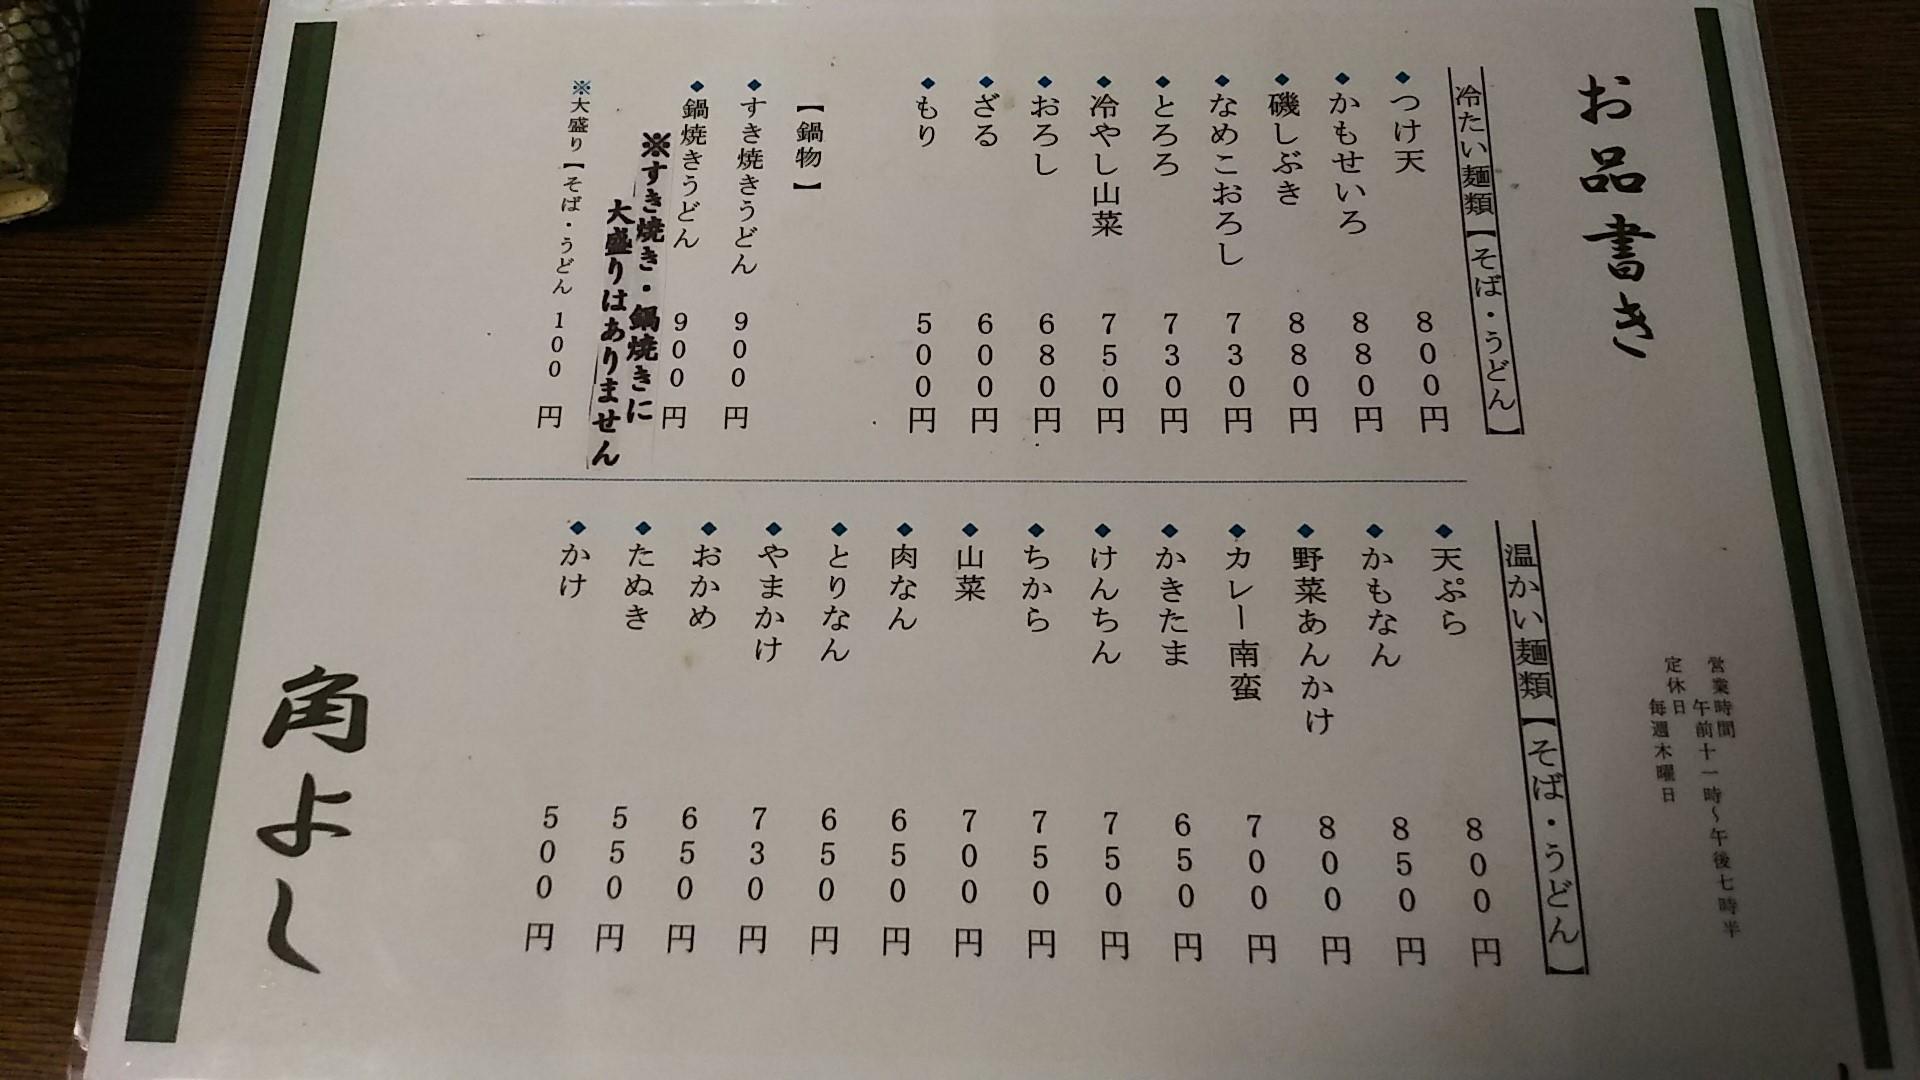 お品書き
営業時間
午前十一時～午後七時半
定休日
毎週木曜日
冷たい麺類【そば・うどん】
◆つけ天 800円
◆かもせいろ 880円
◆磯しぶき 880円
◆なめこおろし 730円
◆とろろ 730円
◆冷やし山菜 750円
◆おろし 680円
◆ざる 600円
◆もり 500円
【鍋物】
◆すき焼きうどん 900円
◆鍋焼きうどん 900円
※すき焼き・鍋焼きに
大盛りはありません
※大盛り【そば・うどん 100円
温かい麺類【そば・うどん】
◆天ぷら 800円
◆かもなん 850円
◆野菜あんかけ 800円
◆カレー南蛮 700円
◆かきたま 650円
◆けんちん 750円
◆ちから 750円
◆山菜 700円
◆肉なん 650円
◆とりなん 650円
◆やまかけ 730円
◆おかめ 650円
◆たぬき 550円
◆かけ 500円
角よし